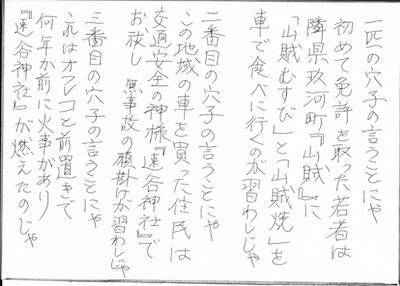 一匹の穴子の言うことにゃ
初めて免許を取った若者は
隣県玖河町『山賊』に
「山賊むすび」と「山賊焼」を
車で食べに行くのが習わしじゃ
二番目の穴子の言うことにゃ
この地域の車を買った住民は
交通安全の神様『速谷神社』で
お祓し 無事故の願掛けが習わしじゃ
三番目の穴子の言うことにゃ
これはオフレコと前置きで
何年か前に火事があり
『速谷神社』が燃えたのじゃ